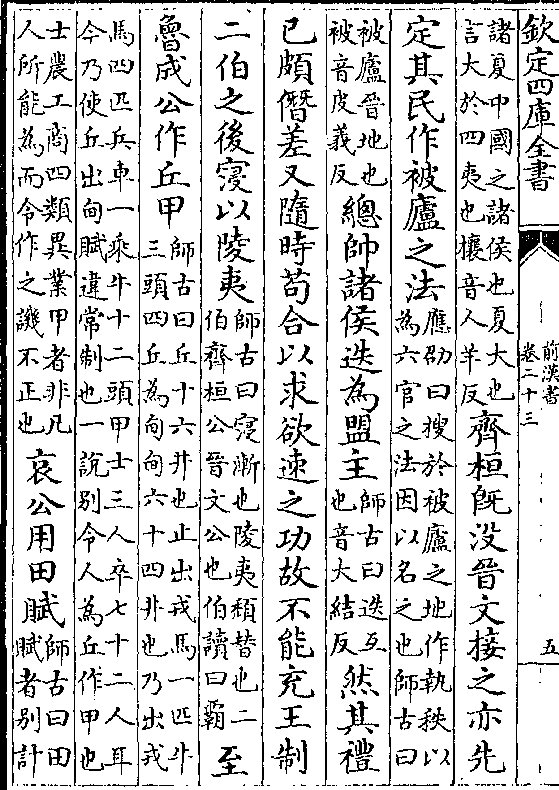 欽定四庫全書
前漢書
卷二十三
五
諸夏中國之諸侯也夏大也
言大於四夷也攘音人羊反
齊桓既沒晉文接之亦先
定其民作被廬之法
應劭曰搜於被廬之地作執秩以
為六官之法因以名之也師古曰
被廬晉地也
被音皮義反
總帥諸侯迭為盟主
師古曰迭互
也音大結反
然其禮
已頗僭差又隨時苟合以求欲速之功故不能充王制
二伯之後寖以陵夷
師古曰寖漸也陵夷頹替也二
伯齊桓公晉文公也伯讀曰霸
至
魯成公作丘甲
師古曰丘十六井也止出戎馬一匹牛
三頭四丘為甸甸六十四井也乃出戎
馬四匹兵車一乘牛十二頭甲士三人卒七十二人耳
今乃使丘出甸賦違常制也一說別令人為丘作甲也
士農工商四類異業甲者非凡
人所能為而令作之譏不正也
哀公用田賦
師古曰田
賦者別計